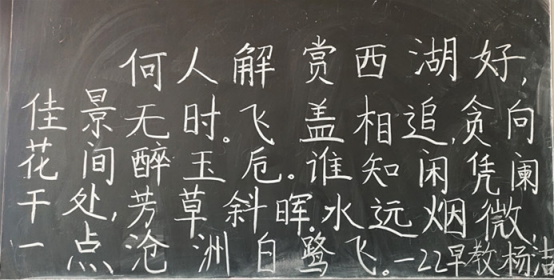 何人解赏西湖好,
佳景无时。飞盖相追,贪向
花间醉玉卮。谁知闲凭阑
干处,芳草斜晖。水远烟微,
一点沧洲白鹭飞。—22早教杨洁